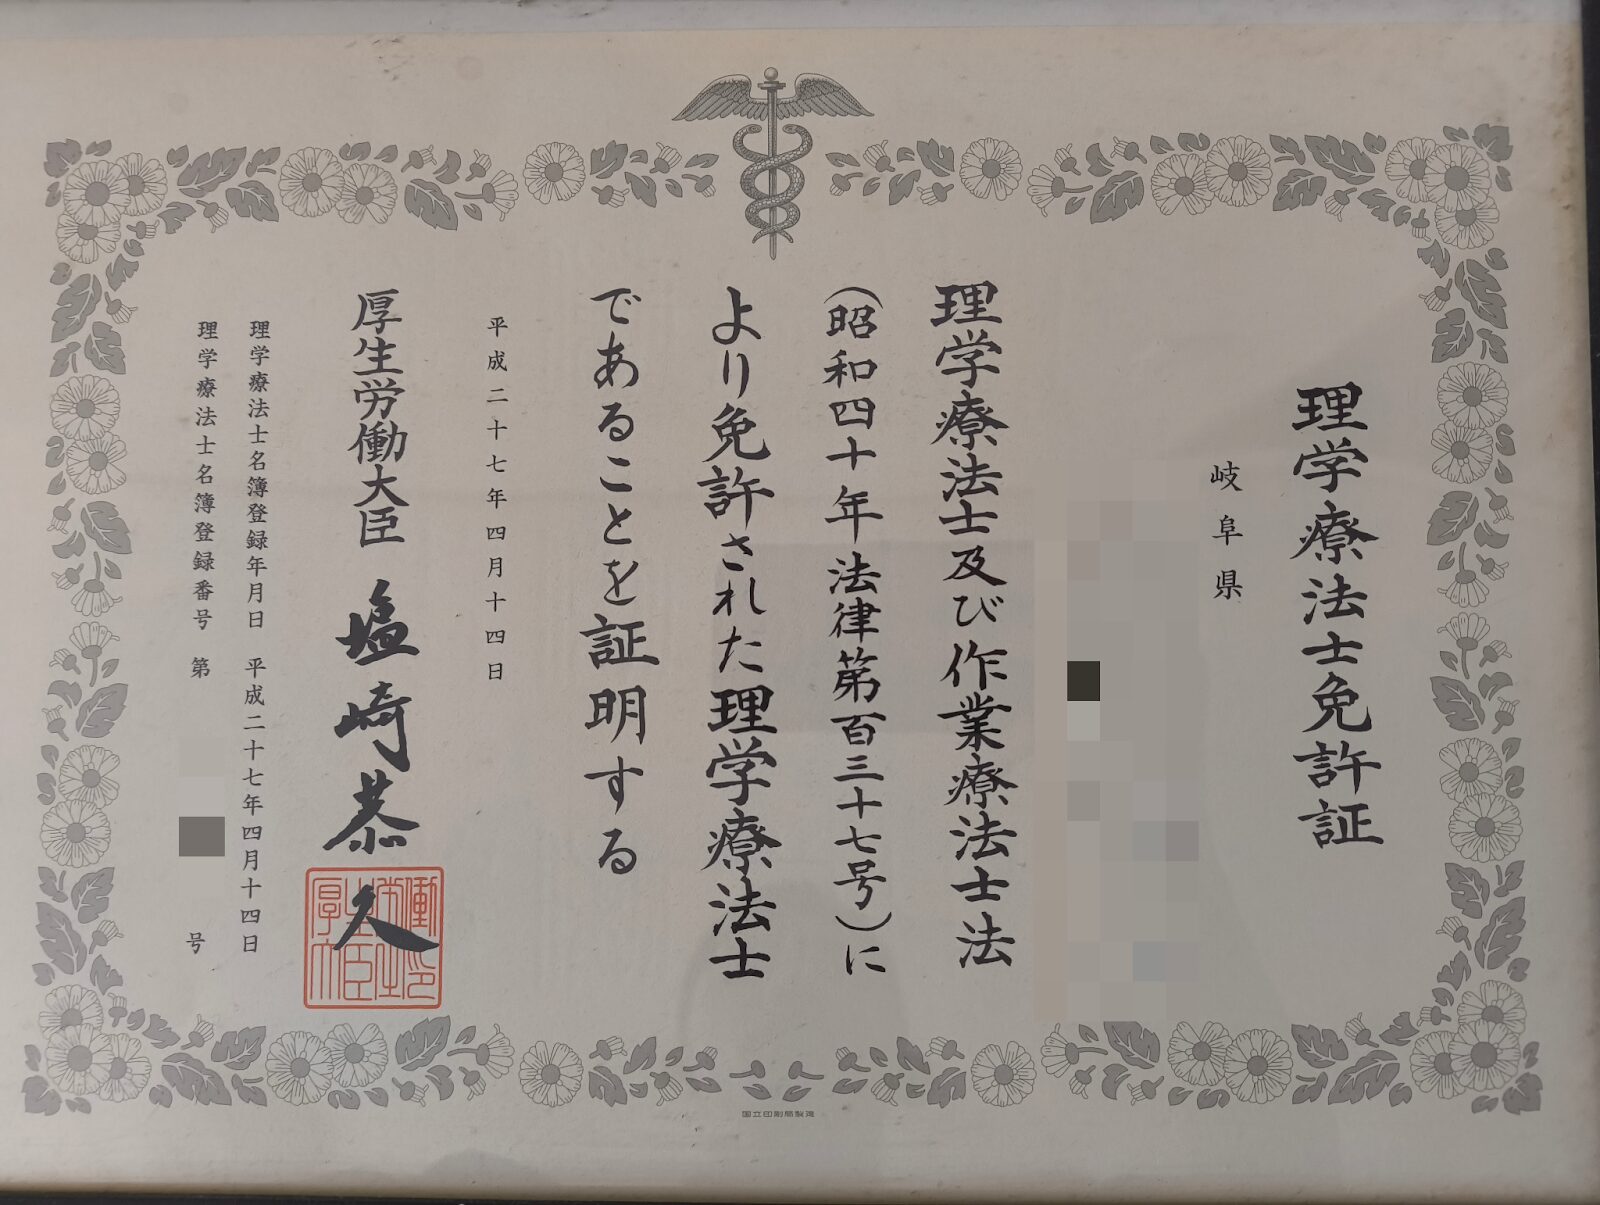 理学療法士免許証
岐阜県
理学療法士及び作業療法士法
(昭和四十年法律第百三十七号)に
より免許された理学療法士
であることを証明する
平成二十七年四月十四日
厚生労働大臣 塩崎恭久
理学療法士名簿登録年月日 平成二十七年四月十四日
理学療法士名簿登録番号 第 号
国立印刷局製造